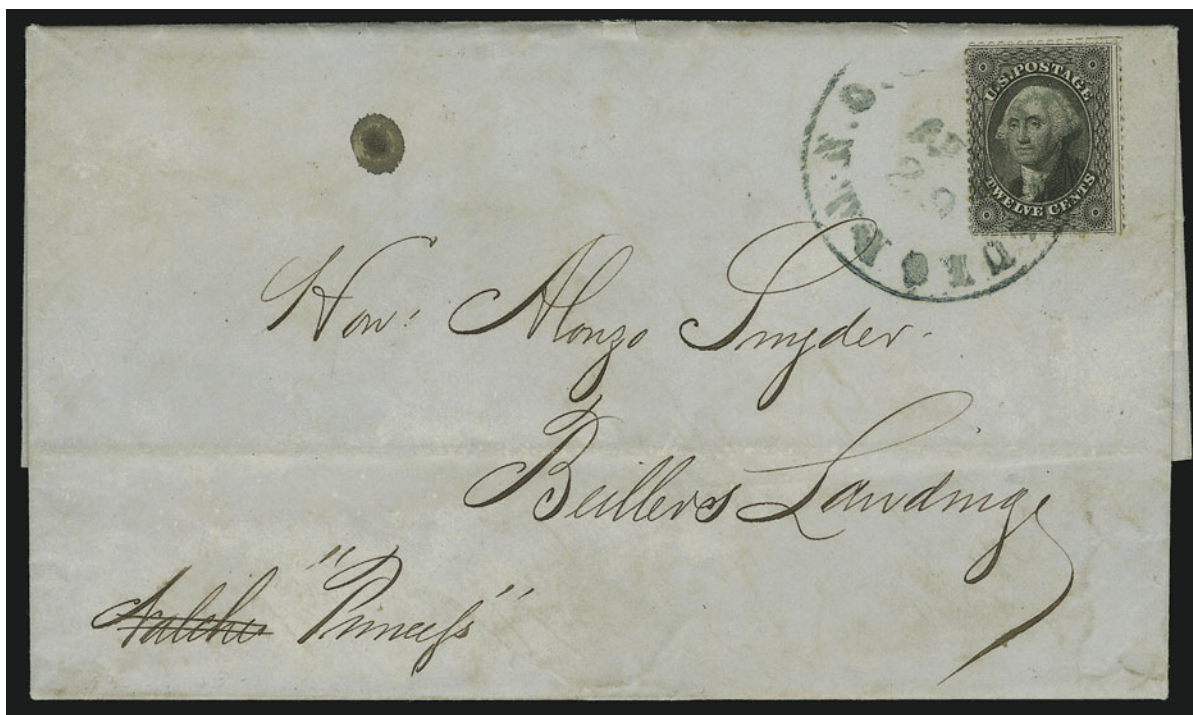 U.S. POSTAGE
TWELVE CENTS
Hon: Alonzo Snyder.
Beillers Landing
Natchez "Princess"